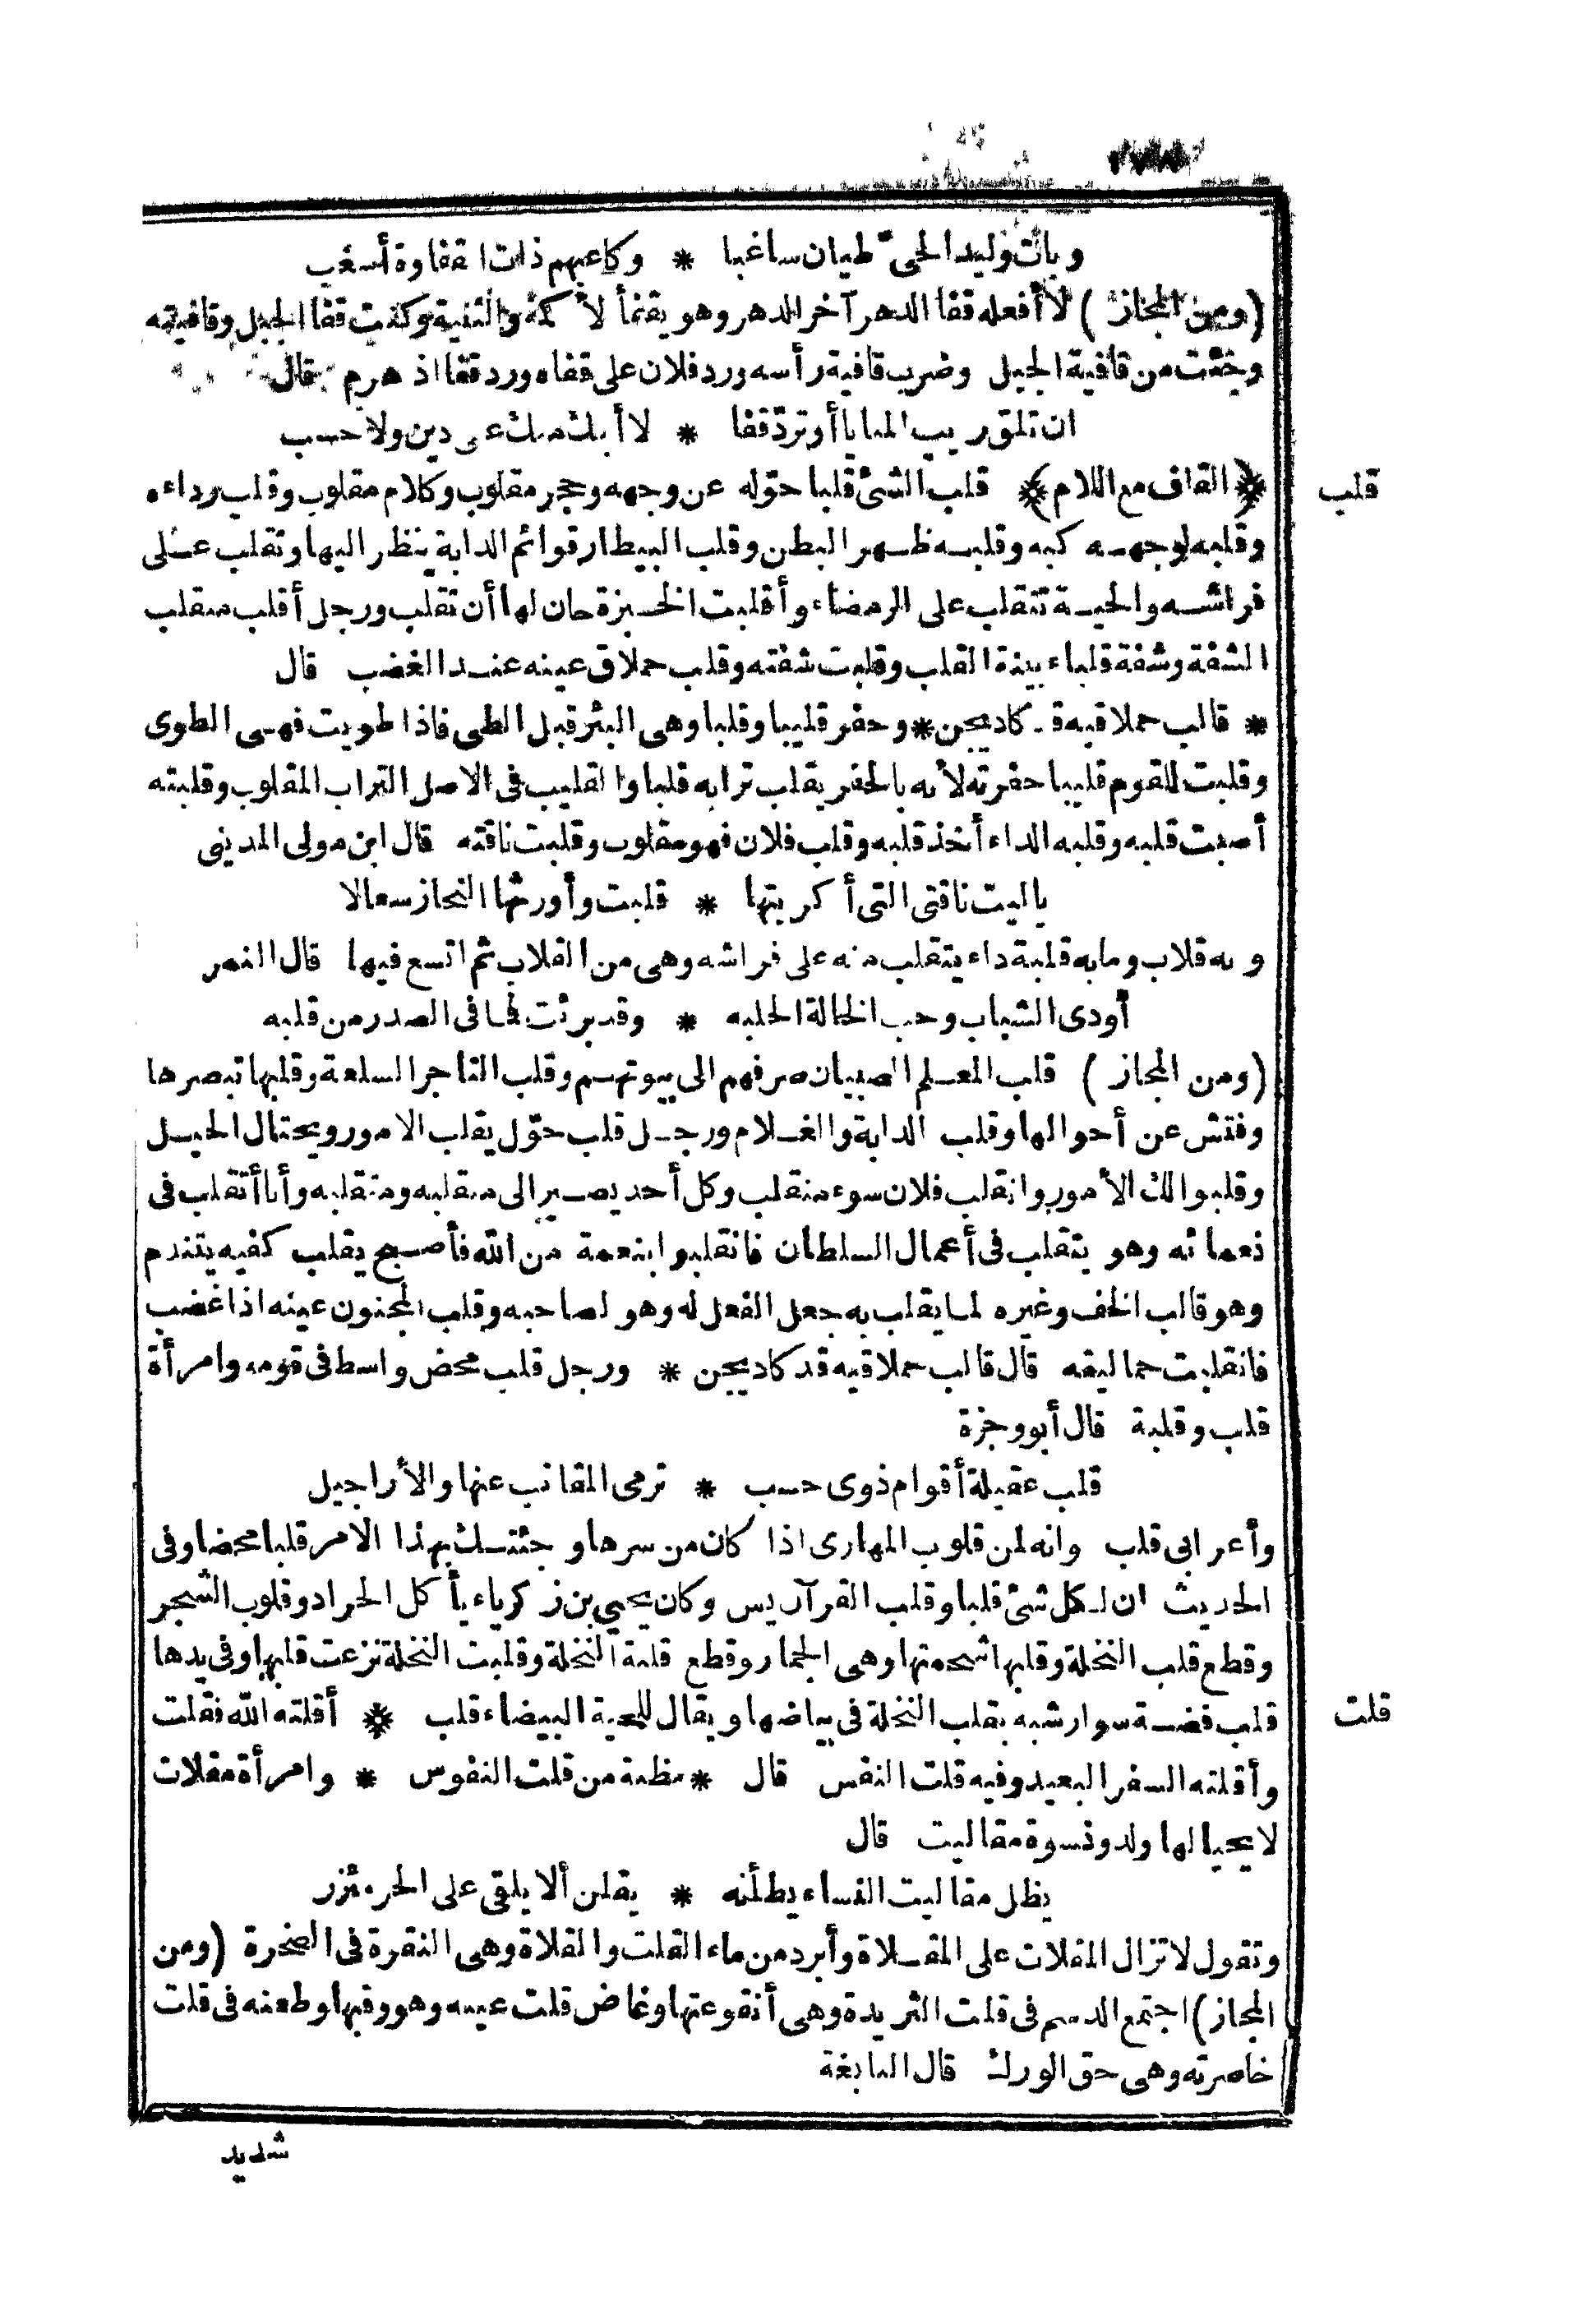 وبات وليد الحىّ طيان ساغبا * وكاعبهم ذات القفاوة أسغب
(ومن المجاز) لا أفعله قفا الدهر آخر الدهر وهو يقفأ لأكمة والثنية وكنت قفا الجبل وقافيته
وجئت من قافية الجبل وضرب قافية رأسه ورد فلان على قفاه ورد قفا اذ هرم قال
ان تلق ريب المنايا أو تردّ قفا * لا أبك منك على دين ولا حسب
﴿القاف مع اللام﴾ قلب الشئ قلبا حوّله عن وجهه وحجر مقلوب وكلام مقلوب وقلب رداءه
قلب
وقلبه لوجهه كبه وقلبه ظهر البطن وقلب البيطار قوائم الدابة ينظر اليها وتقلب على
فراشه والحية تتقلب على الرمضاء وأقلبت الخبزة حان لها أن تقلب ورجل أقلب منقلب
الشفة وشفة قلباء بينة القلب وقلبت شفته وقلب حملاق عينه عند الغضب قال
* قالب حملاقيه قد كاد يجن * وحفر قليبا وقلبا وهى البئر قبل الطى فاذا طويت فهى الطوى
وقلبت للقوم قليبا حفرته لأنه بالحفر يقلب ترابه قلبا والقليب فى الاصل التراب المقلوب وقلبته
أصبت قلبه وقلبه الداء أخذ قلبه وقلب فلان فهو مقلوب وقلبت ناقته قال ابن مولى المدينى
يا ليت ناقتى التى أكريتها * قلبت وأورثها النحاز سعالا
وبه قلاب وما به قلبة داء يتقلب منه على فراشه وهى من القلاب ثم اتسع فيها قال النمر
أودى الشباب وحب الخالة الخلبه * وقد برئت فما فى الصدر من قلبه
(ومن المجاز) قلب المعلم الصبيان صرفهم الى بيوتهم وقلب التاجر السلعة وقلبها تبصرها
وفتش عن أحوالها وقلب الدابة والغلام ورجل قلب حوّل يقلب الامور ويحتال الحيل
وقلبوا لك الأمور وانقلب فلان سوء منقلب وكل أحد يصير الى منقلبه ومتقلبه وأنا أتقلب فى
نعمائه وهو يتقلب فى أعمال السلطان فانقلبوا بنعمة من الله فأصبح يقلب كفيه يتندم
وهو قالب الخف وغيره لما يقلب به جعل الفعل له وهو لصاحبه وقلب المجنون عينه اذا غضب
فانقلبت حماليقه قال قالب حملاقيه قد كاد يجن * ورجل قلب محض واسط فى قومه وامرأة
قلب وقلبة قال أبو وجزة
قلب عقيلة أقوام ذوى حسب * ترمى المقانب عنها والأراجيل
وأعرابى قلب وانه لمن قلوب المهارى اذا كان من سرها وجئتك بهذا الامر قلبا محضا وفى
الحديث ان لكل شئ قلبا وقلب القرآن يس وكان يحيى بن زكرياء يأكل الجراد وقلوب الشجر
وقطع قلب النخلة وقلبها شحمتها وهى الجمار وقطع قلبة النخلة وقلبت النخلة نزعت قلبها وفى يدها
قلب فضة سوار شبه بقلب النخلة فى بياضها ويقال للحية البيضاء قلب * أقلته الله فقلت
قلت
وأقلته السفر البعيد وفيه قلت النفس قال * مظنة من قلت النفوس * وامرأة مقلات
لا يحيا لها ولد ونسوة مقاليت قال
يظل مقاليت النساء يطأنه * يقلن ألا يلقى على الحر مئزر
وتقول لا تزال المقلات على المقلاة وأبرد من ماء القلت والقلاة وهى النقرة فى الصخرة (ومن
المجاز) اجتمع الدسم فى قلت الثريدة وهى أنقوعتها وغاض قلت عينه وهو وقبها وطعنه فى قلت
خاصرته وهى حق الورك قال النابغة
شديد